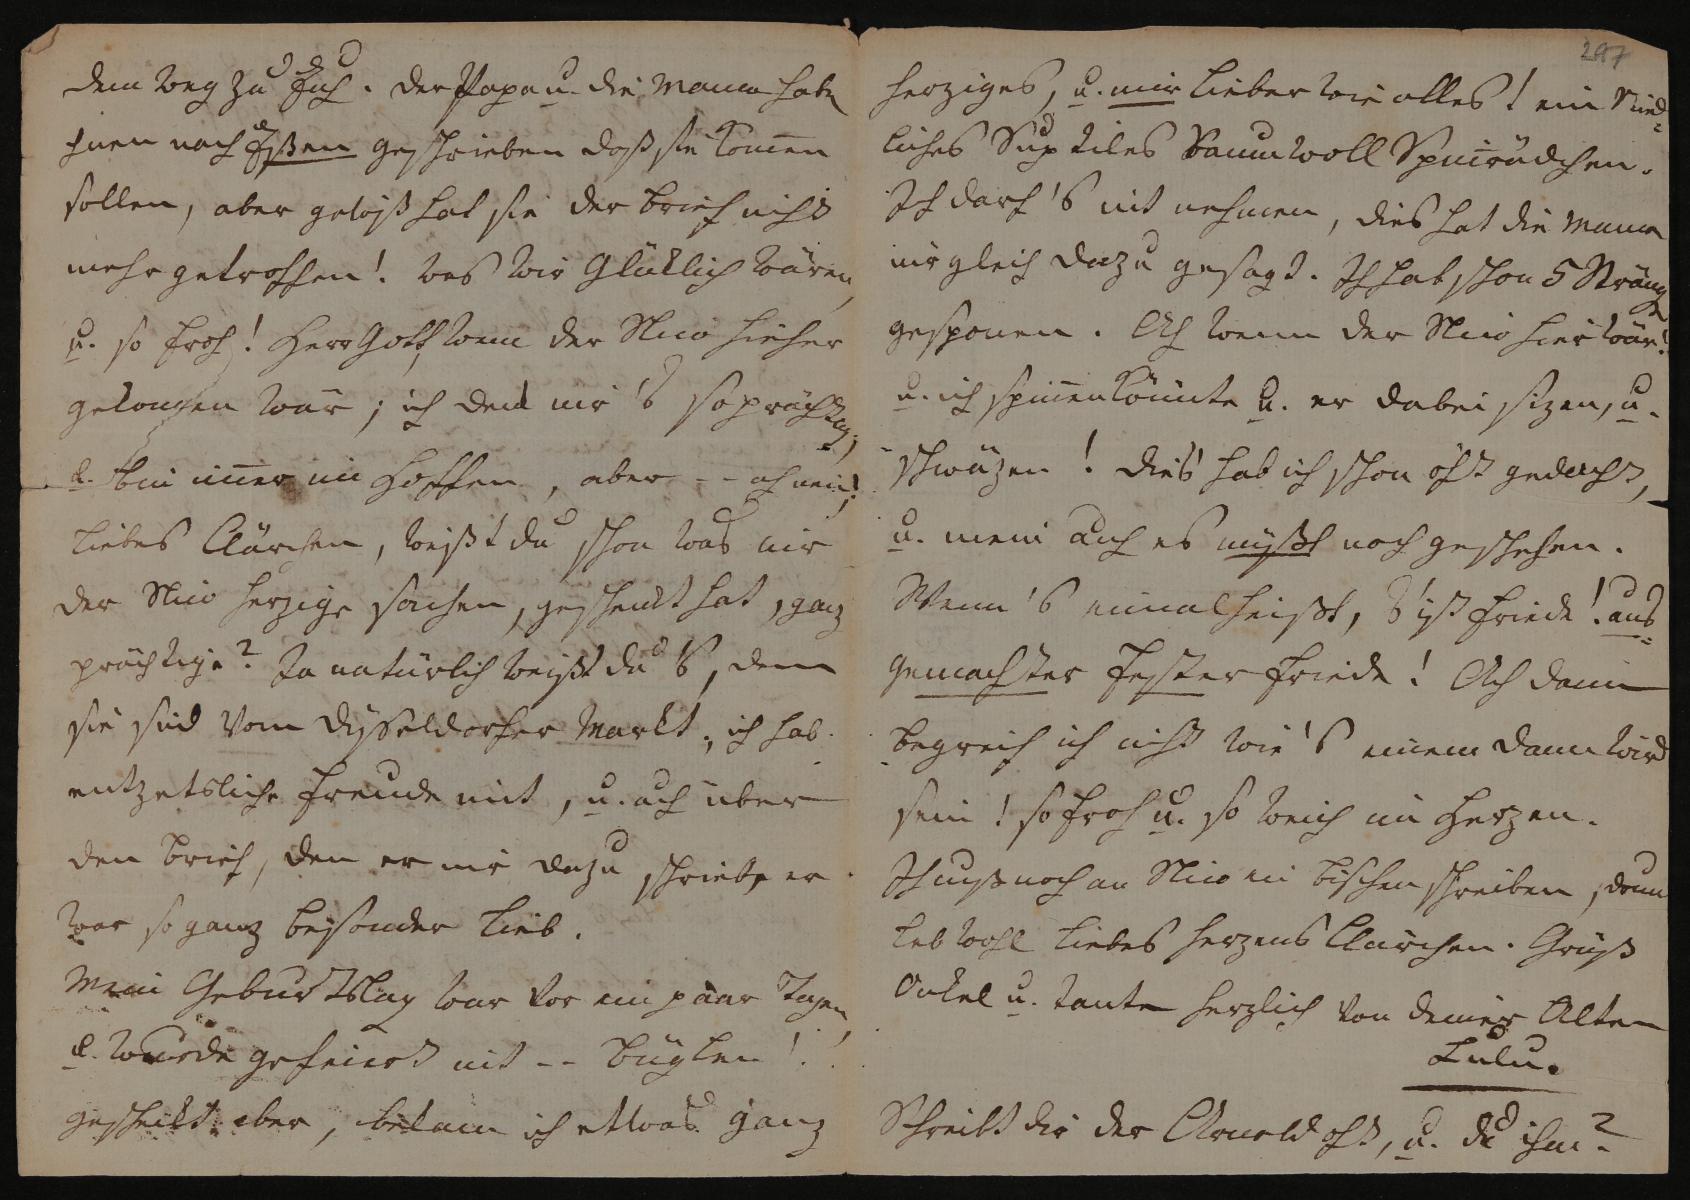 dem weg zu Euch. Der Papa u. die Mama habe
Ihnen nach Eßen geschrieben daß sie kom̄en
sollen, aber gewiß hat sie der brief nicht
mehr getroffen! Was wir Glüklich wären,
u. so froh! Herr Gott, wenn der Nico hieher
gekom̄en wär; ich denk mir's so prächtig,
u. bin im̄er im Hoffen, aber -- ach nein!
Liebes Clärchen, weißt du schon was mir
der Nico herzige sachen, geschenkt hat, ganz
prächtige? Ja natürlich weißt du's, denn
sie sind vom Düsseldorfer Markt; ich hab
entzetsliche freude mit, u. auch über
den brief, den er mir dazu schriebe, er
war so ganz besonder lieb.
Mein Geburtstag war vor ein paar Tagen,
u. wurde gefeiert mit -- büglen!!
geschenkt aber, bekam ich etwas ganz
297
herziges, u. mir lieber wie alles! ein Nied=
liches Suptiles Baumwoll Spin̄rädchen.
Ich darf's mit nehmen, dies hat die Mama
mir gleich dazu gesagt. Ich hab schon 5 Stränge
gesponen. Ach wenn der Nico hier wär!
u. ich spin̄en kön̄nte u. er dabei sizen, u.
schwäzen! dies hab ich schon oft gedacht,
u. mein auch es müßt noch geschehen.
Wenn's einmal heißt, s'ist friede! aus=
gemachter fester friede! Ach dann
begreif ich nicht wie's einem dann wird
sein! so froh u. so weich im Herzen.
Ich muß noch an Nico ein bischen schreiben, drum
leb wohl liebes herzens Clärchen. Grüß
Onkel u. Tante herzlich von deiner Alten
Lulu.
Schreibt dir der Arnold oft, u. du ihm?